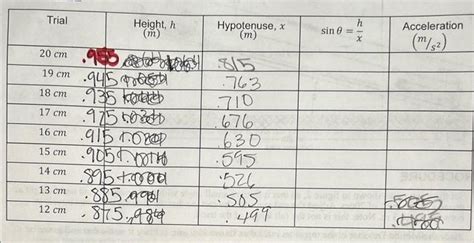 Trial Height, h (m) Hypotenuse, x (m) sin θ = h/x Acceleration (m/s²)
20 cm .955 .815
19 cm .945 .763
18 cm .935 .710
17 cm .925 .676
16 cm .915 .630
15 cm .905 .595
14 cm .895 .526
13 cm .885 .505
12 cm .875 .499